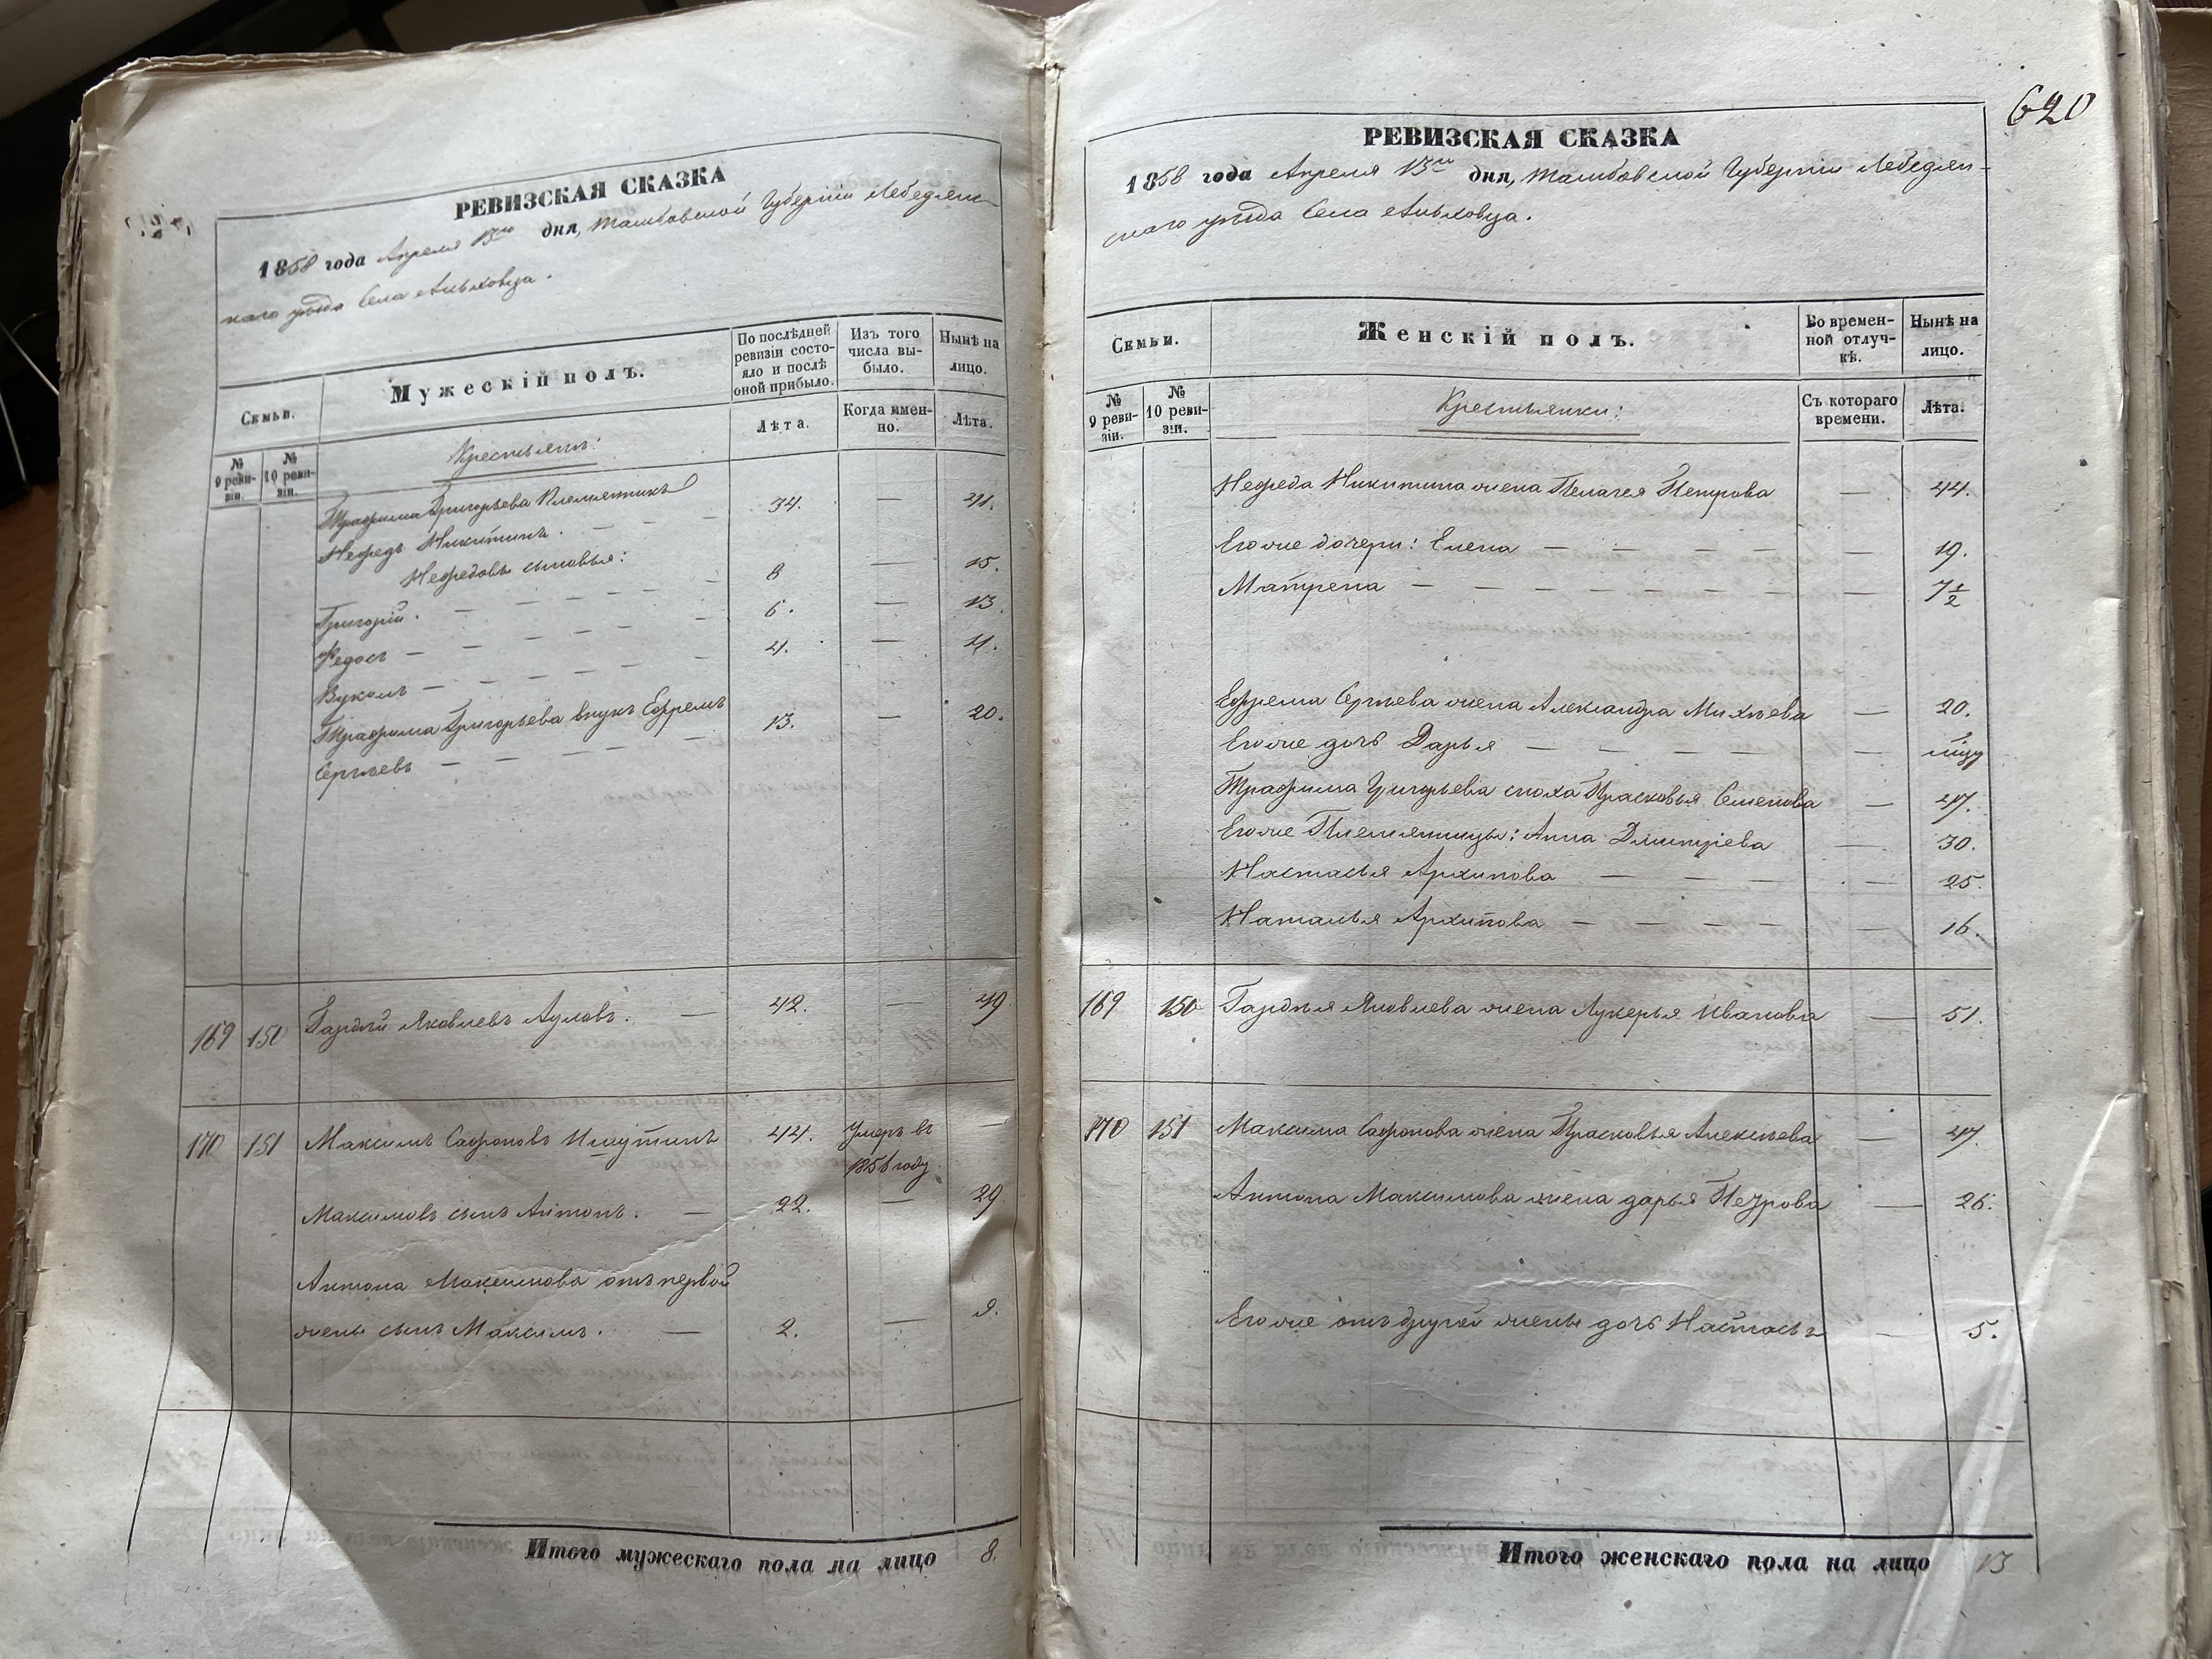 РЕВИЗСКАЯ СКАЗКА
1858 года Апреля 13го дня, Тамбовской Губерніи Лебедянс-
каго уѣзда Села
Семьи.
Мужескій полъ.
По послѣдней ревизіи состояло и послѣ оной прибыло.
Изъ того числа выбыло.
Нынѣ на лицо.
№ 9 ревизіи.
№ 10 ревизіи.
Крестьяне:
Лѣта.
Когда именно.
Лѣта.
Трафима Григорьева Племянникъ
Нефедъ Никитинъ. — 34. — 41.
Нефедовы сыновья:
Григорій. — 8 — 15.
Федосъ — 6. — 13
Вуколъ — 4. — 11.
Трафима Григорьева внукъ Ефремъ
Сергѣевъ — 13. — 20.
169 150 Гардѣй Яковлевъ Ауловъ. — 42. — 49
170 151 Максимъ Сафроновъ Ишутинъ 44. Умеръ въ 1856 году. —
Максимовъ сынъ Антонъ. — 22. — 29.
Антона Максимова отъ первой
жены сынъ Максимъ. — 2. — 9.
Итого мужескаго пола на лицо 8.
620
РЕВИЗСКАЯ СКАЗКА
1858 года Апреля 13го дня, Тамбовской Губерніи Лебедян-
скаго уѣзда Села
Семьи.
Женскій полъ.
Во временной отлучкѣ.
Нынѣ на лицо.
№ 9 ревизіи.
№ 10 ревизіи.
Крестьянки:
Съ котораго времени.
Лѣта.
Нефеда Никитина жена Пелагея Петрова — 44.
Его же дочери: Елена — 19.
Матрена — 7½
Ефрема Сергѣева жена Александра Михѣева — 20.
Его же дочь Дарья —
Трафима Григорьева сноха Прасковья Семенова — 47.
Его же Племянницы: Анна Дмитріева — 30.
Настасья Архипова — 25.
Наталья Архипова — 16.
169 150 Гардѣя Яковлева жена Лукерья Иванова — 51.
170 151 Максима Сафронова жена Прасковья Алексѣева — 47.
Антона Максимова жена дарья Петрова — 26.
Его же отъ другой жены дочь Настасья — 5.
Итого женскаго пола на лицо 13